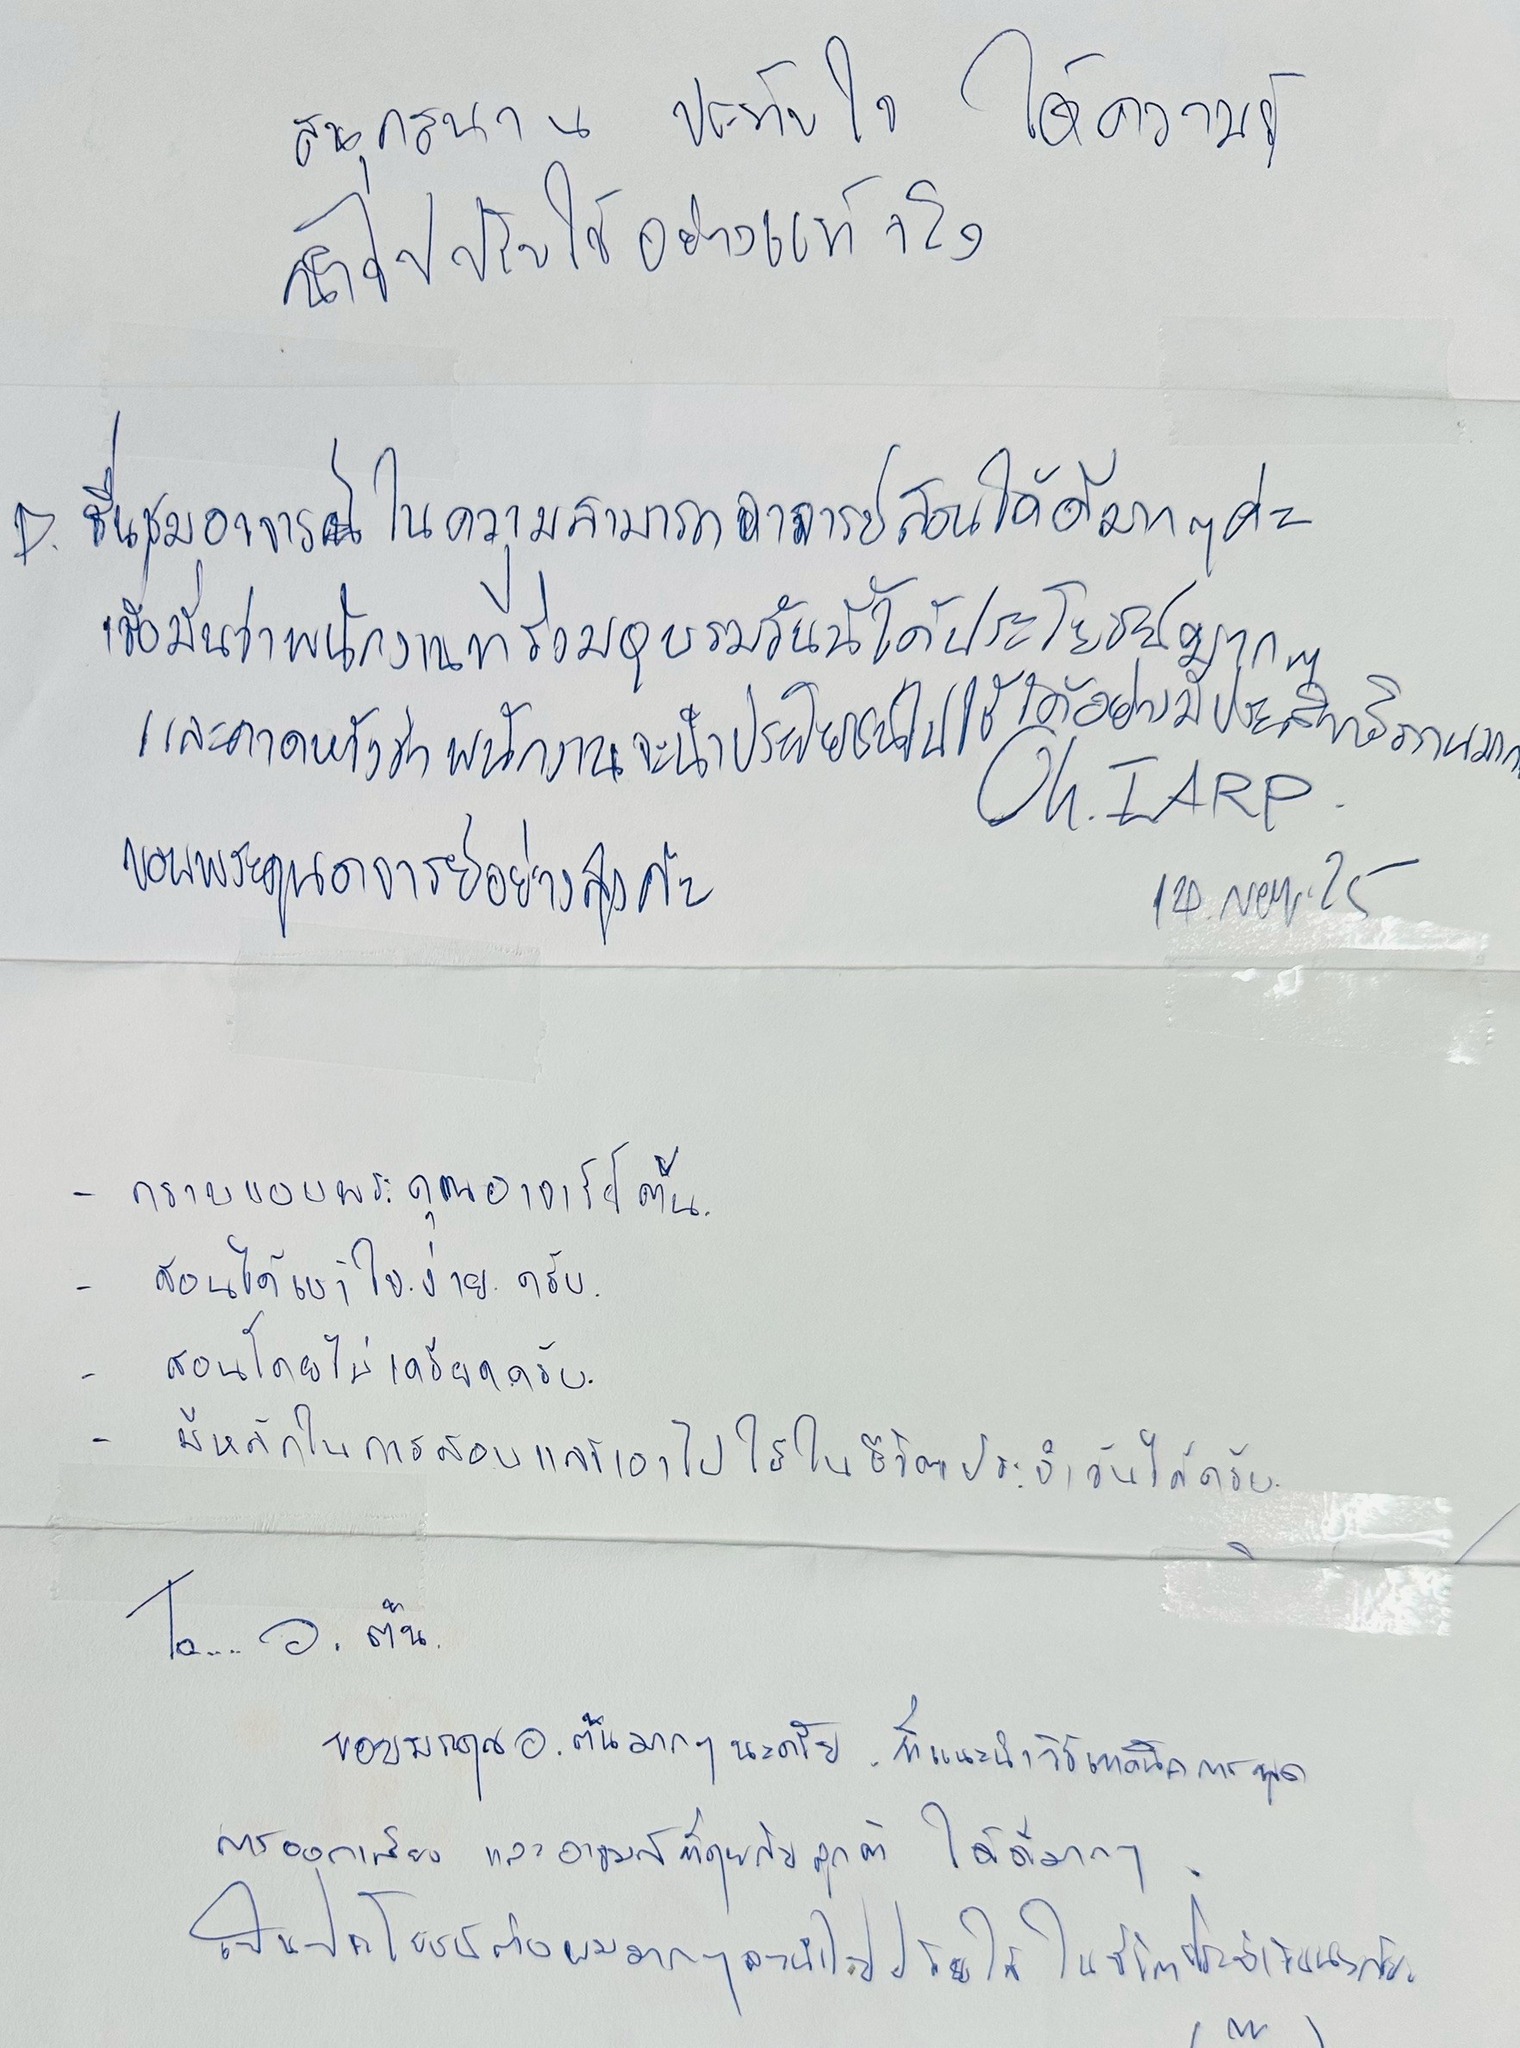 สนุกสนาน ประทับใจ ได้ความรู้
นำไปปรับใช้อย่างแท้จริง
ชื่นชมอาจารย์ ในความสามารถ อาจารย์สอนได้ดีมากๆ ค่ะ
เชื่อมั่นว่าพนักงานที่ร่วมอบรมวันนี้ได้ประโยชน์มากๆ
และคาดหวังว่า พนักงานจะนำประโยชน์ไปใช้ได้อย่างมีประสิทธิภาพมาก
Oh. IARP.
ขอบพระคุณอาจารย์อย่างสูงค่ะ
14. Nov. 25
- กราบขอบพระคุณอาจารย์ต้น.
- สอนได้เข้าใจ.ง่าย.ครับ.
- สอนโดยไม่เครียดครับ.
- มีหลักในการสอนแล้วเอาไปใช้ในชีวิตประจำวันได้ครับ.
To.... อ. ต้น.
ขอบพระคุณ อ. ต้นมากๆ นะครับ. ที่แนะนำวิธีเทคนิคการพูด
การออกเสียง และอารมณ์ที่คุยกับลูกค้า ได้ดีมากๆ.
เป็นประโยชน์ต่อผมมากๆ จะนำไปปรับใช้ ในชีวิตประจำวันนะครับ.